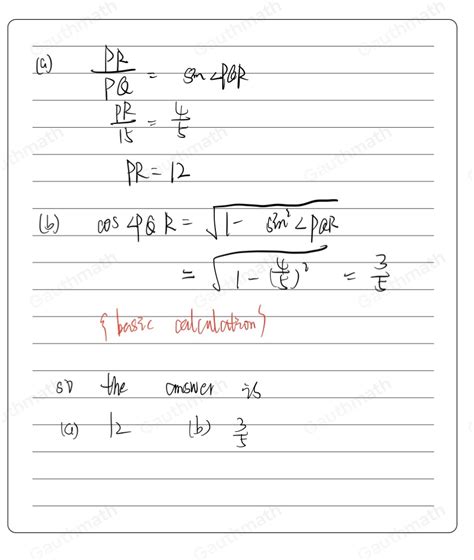 (a) PR/PQ = sin∠PQR
PR/15 = 4/5
PR = 12
(b) cos∠PQR = √(1 - sin²∠PQR)
= √(1 - (4/5)²) = 3/5
{basic calculation}
so the answer is
(a) 12 (b) 3/5
Gauthmath